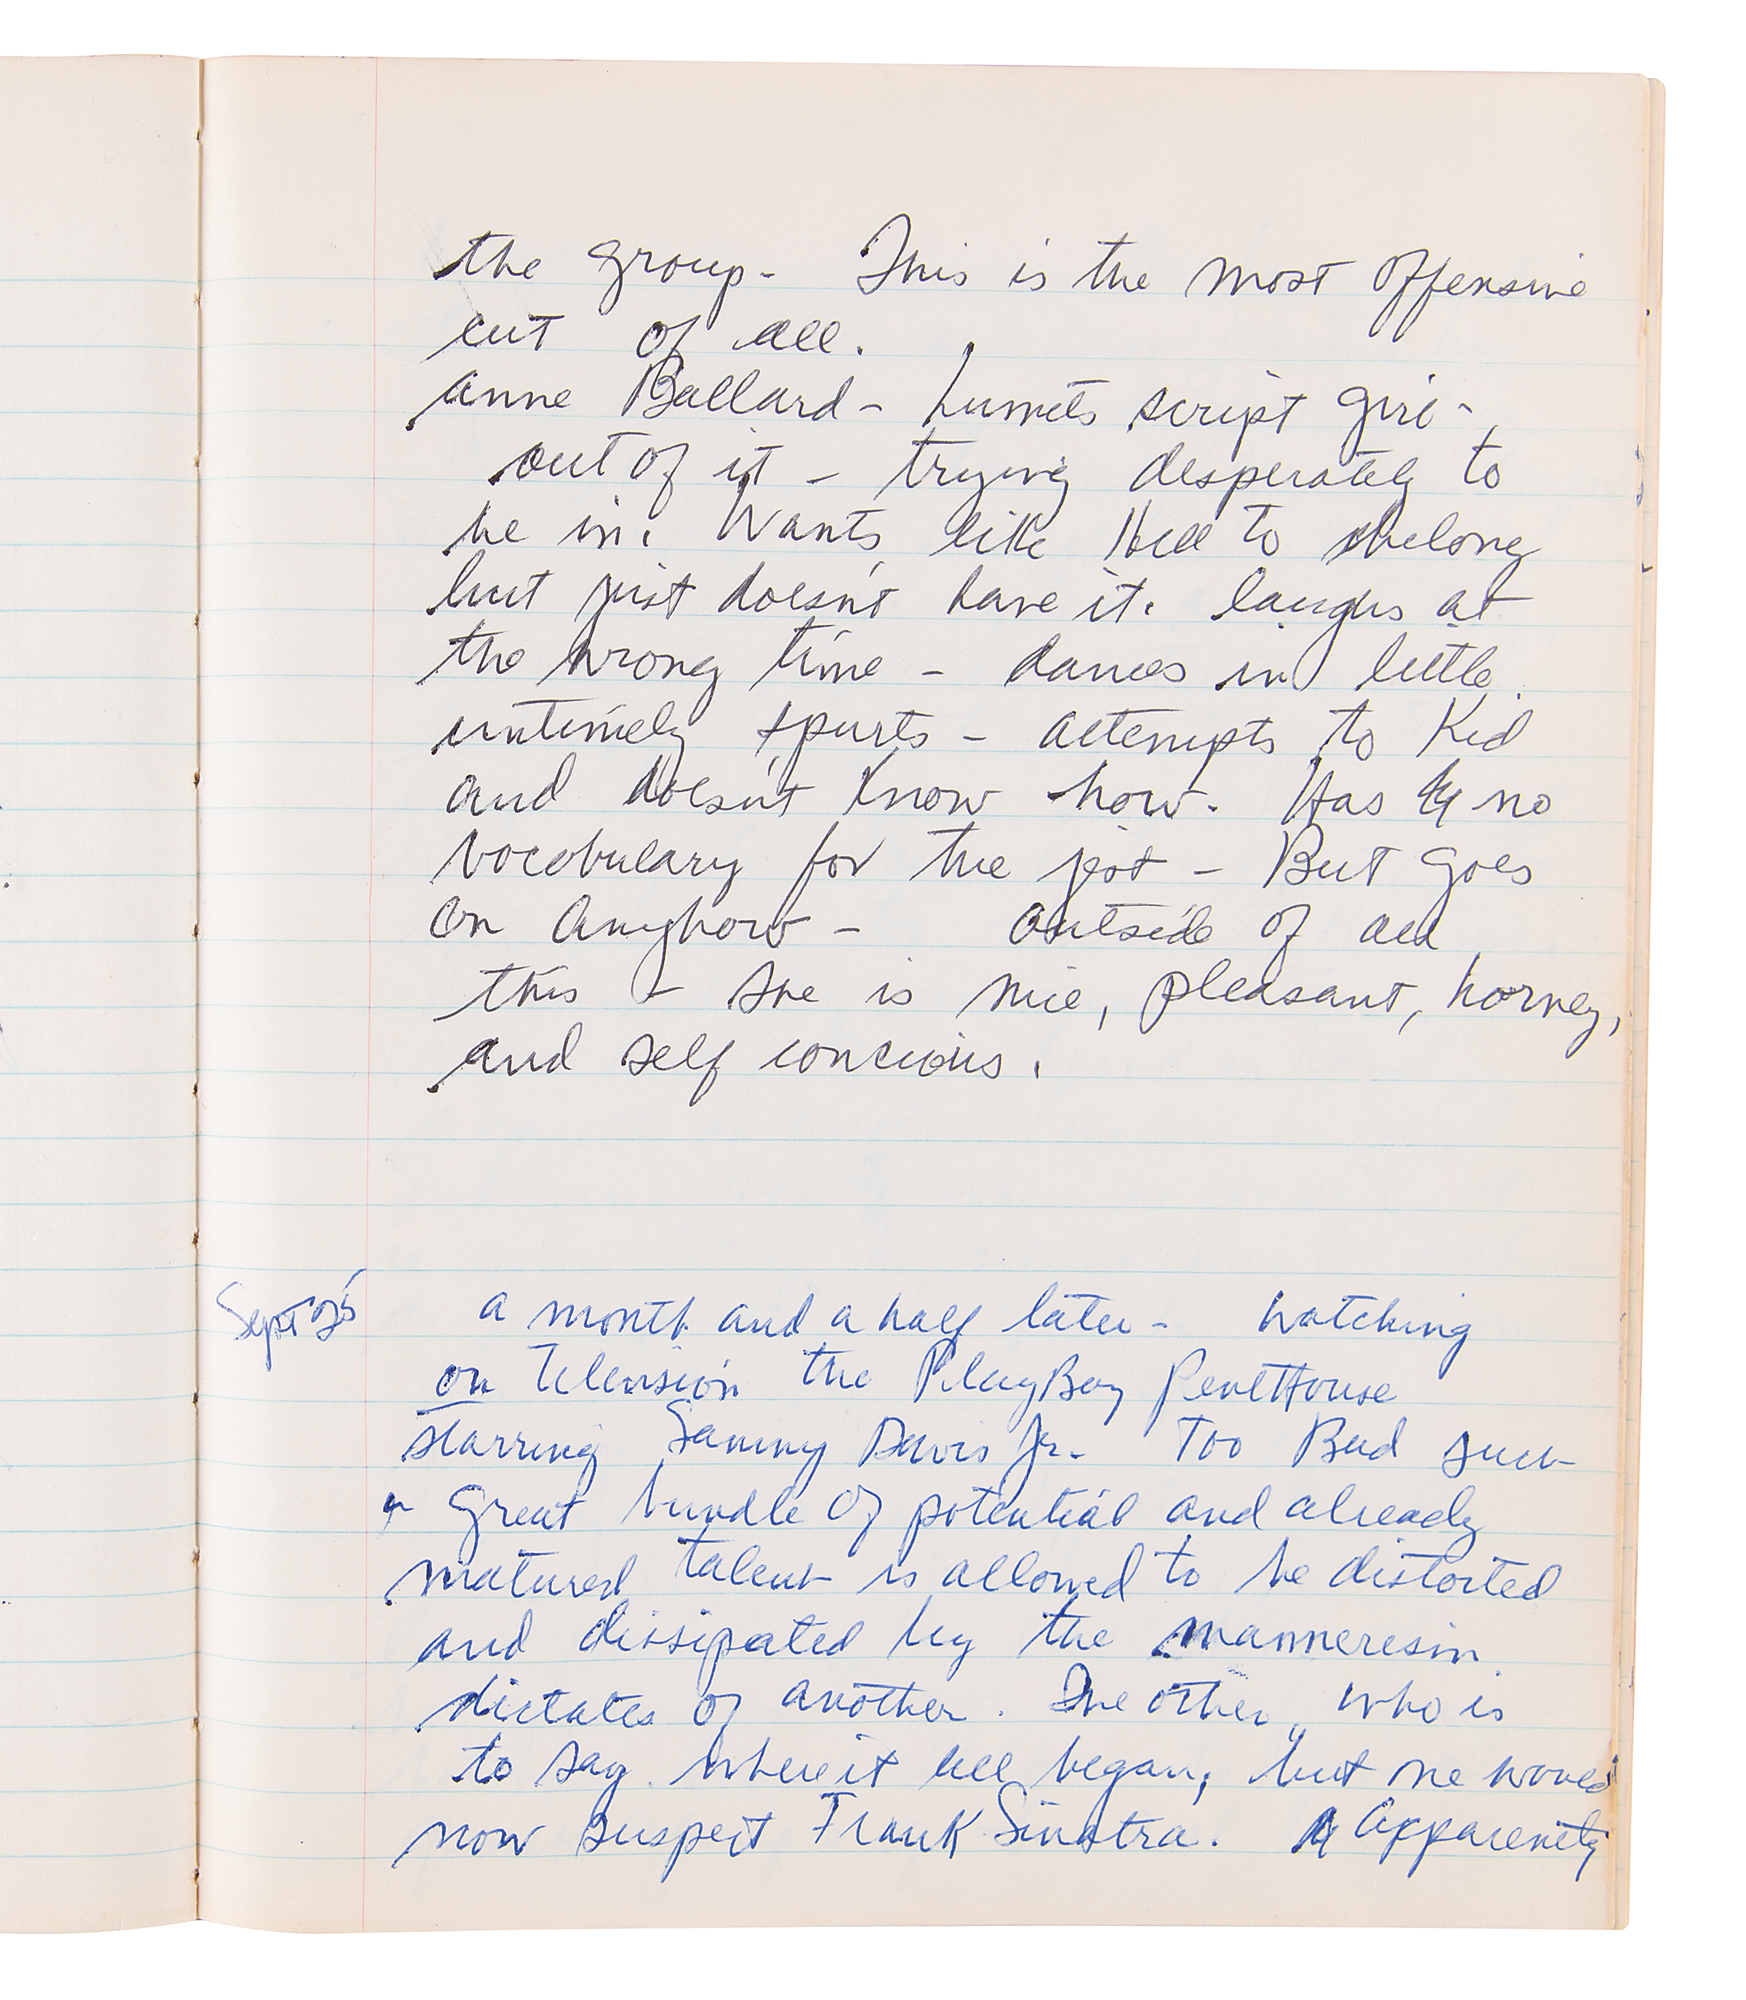 the group- This is the most offensive
cut of all.
Anne Ballard- Lumets script girl-
out of it - trying desperately to
be in. Wants like Hell to belong
but just doesn't have it. laughs at
the wrong time - dances in little
untimely spurts - attempts to Kid
and doesn't know how. Has no
vocobulary for the jest - But goes
on Anyhow - outside of all
this - she is nice, pleasant, horney,
and self concious.
Sept 25
a month and a half later - Watching
on Television the PlayBoy PentHouse
starring Sammy Davis Jr. Too Bad such
a great bundle of potential and already
matured talent is allowed to be distorted
and dissipated by the manneresim
dictates of another. The other, who is
to say where it all began, but we would
now suspect Frank Sinatra. Apparently